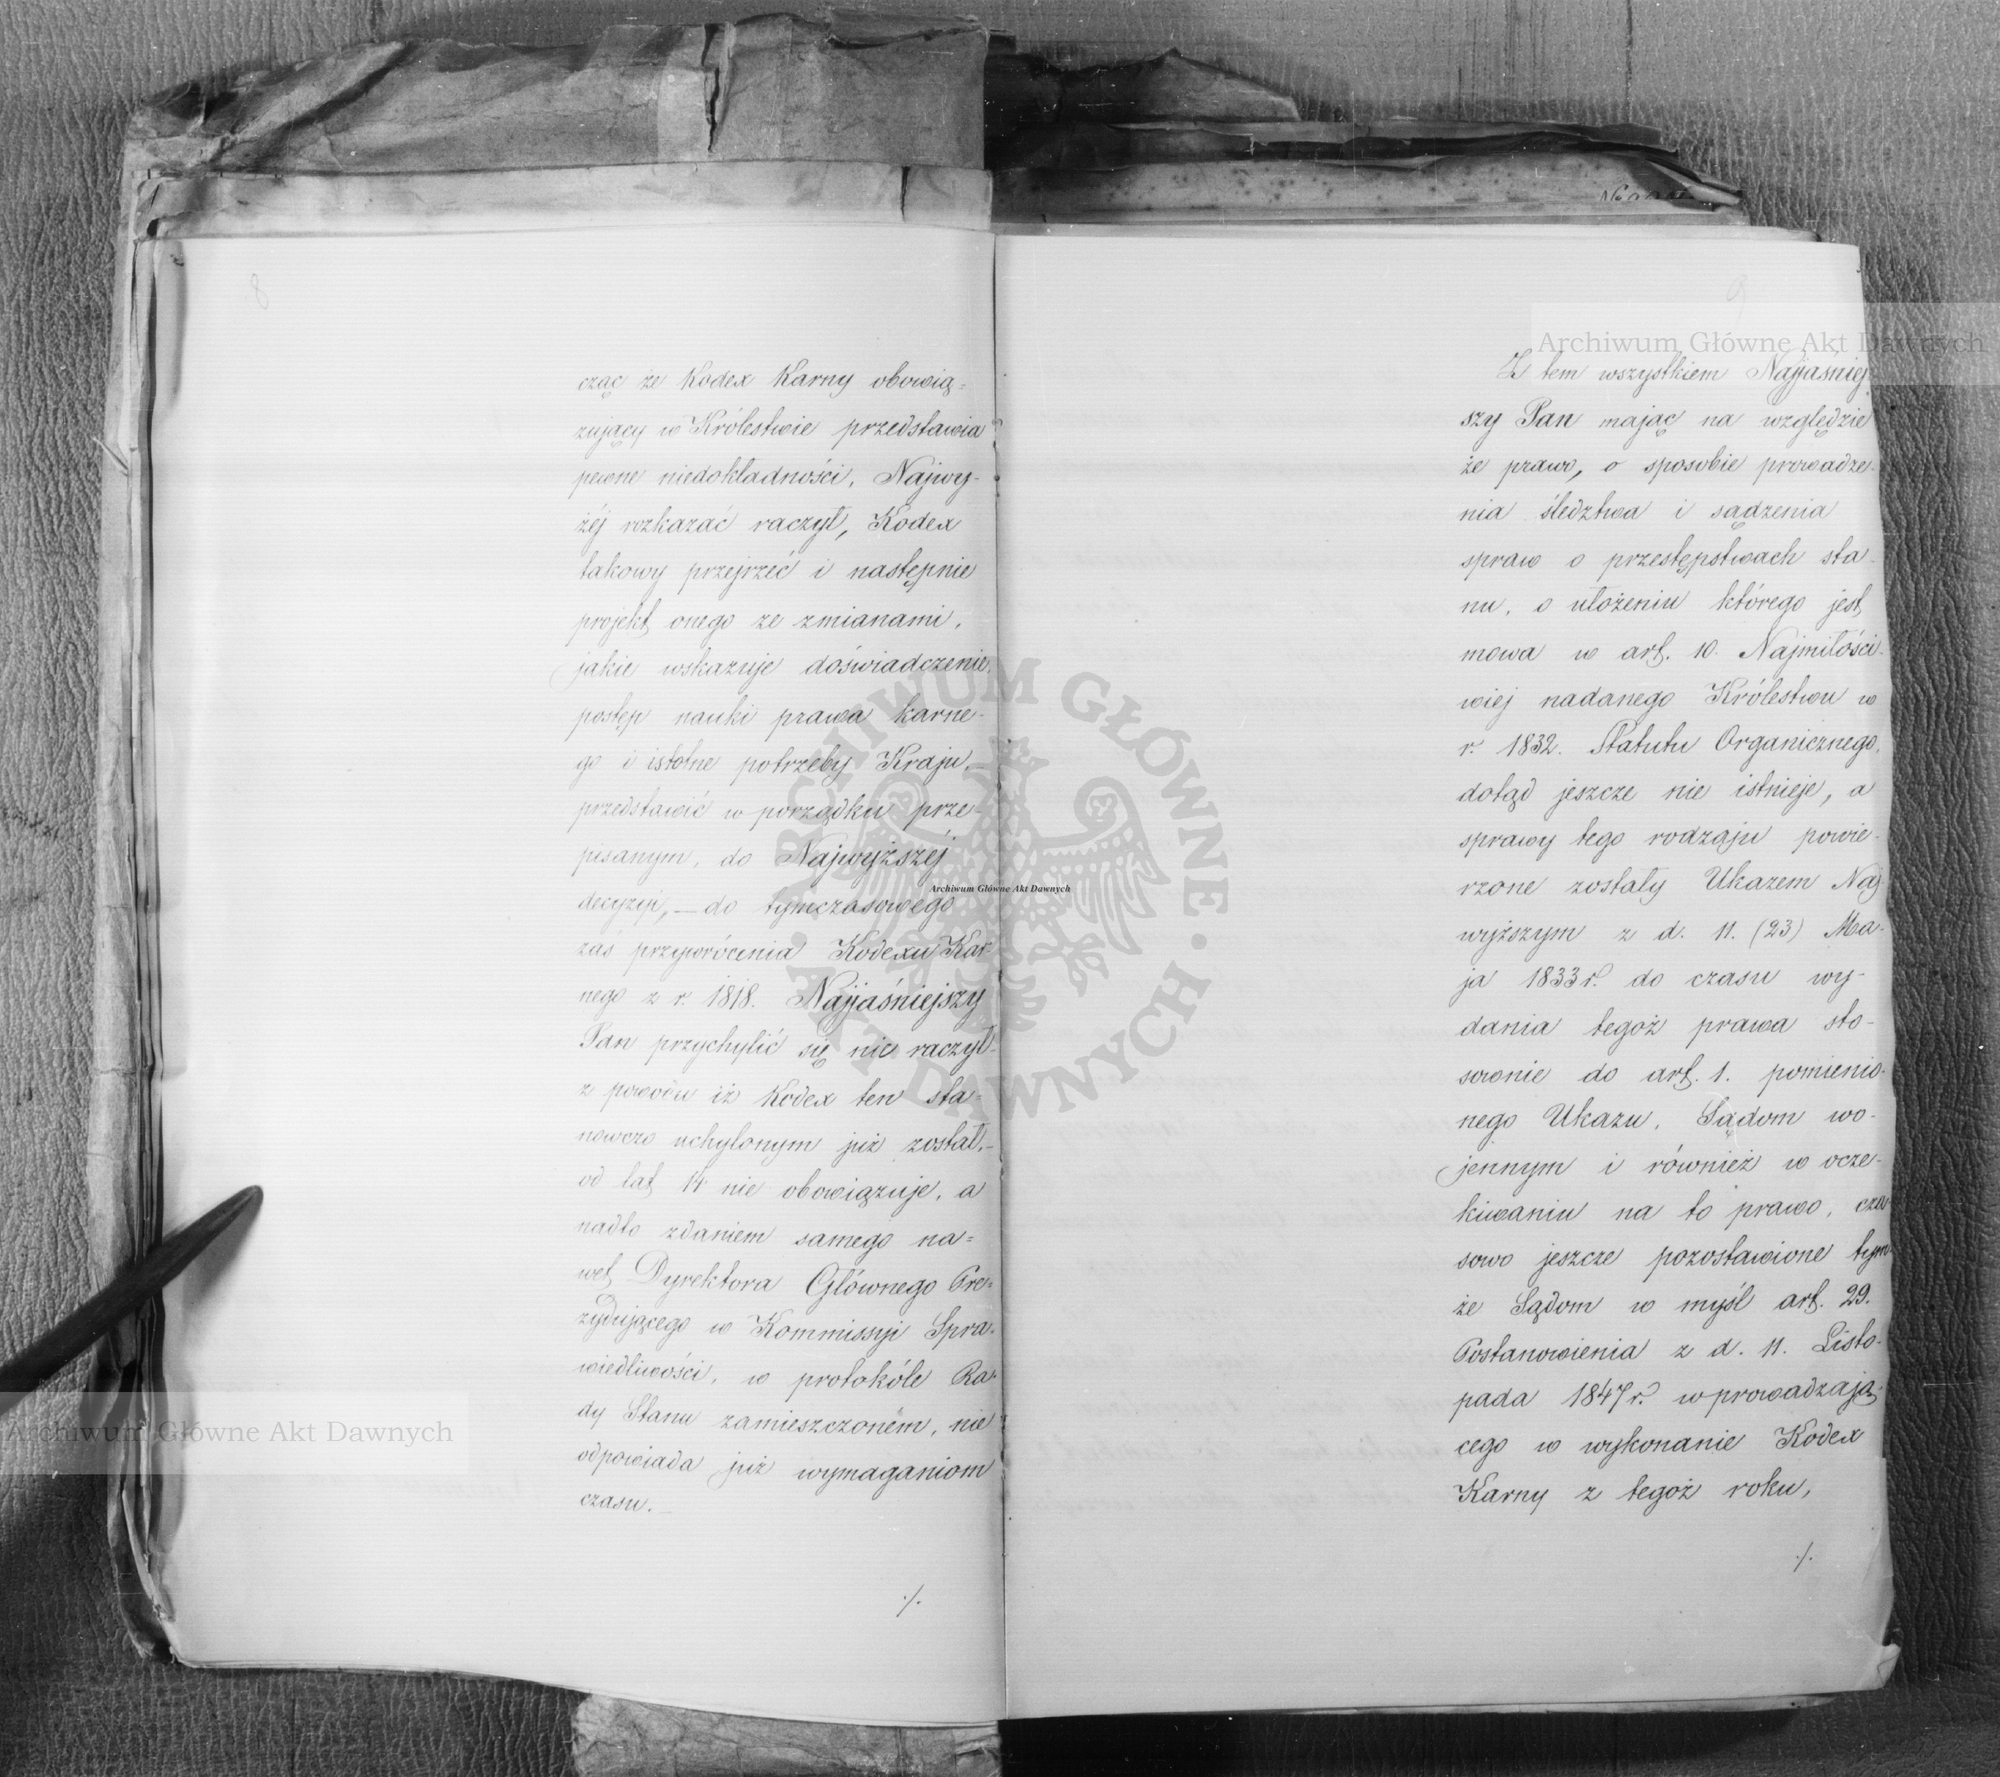 8
cząc że Kodex Karny obowią=
zujący w Królestwie przedstawia
pewne niedokładności, Najwy-
żéj rozkazać raczył, Kodex
takowy przejrzéć i następnie
projekt onego ze zmianami,
jakie wskazuje doświadczenie,
postęp nauki prawa karne-
go i istotne potrzeby Kraju,—
przedstawić w porządku prze-
pisanym, do Najwyższéj
decyzyi,— do tymczasowego
zaś przywrócenia Kodexu Kar-
nego z r. 1818. Najjaśniejszy
Pan przychylić się nie raczył
z powodu iż Kodex ten sta-
nowczo uchylonym już został,—
od lat 14 nie obowiązuje, a
nadto zdaniem samego na=
wet Dyrektora Głównego Pre=
zydującego w Kommissyi Spra-
wiedliwości, w protokóle Ra-
dy Stanu zamieszczoném, nie
odpowiada już wymaganiom
czasu.—
./.
9
Z tem wszystkiem Najjaśniej
szy Pan mając na względzie
że prawo, o sposobie prowadze-
nia śledztwa i sądzenia
spraw o przestępstwach sta
nu, o ułożeniu którego jest
mowa w art. 10. Najmiłości-
wiej nadanego Królestwu w
r. 1832. Statutu Organicznego,
dotąd jeszcze nie istnieje, a
sprawy tego rodzaju powie-
rzone zostały Ukazem Naj
wyższym z d. 11. (23) Ma-
ja 1833 r. do czasu wy-
dania tegoż prawa sto-
sownie do art. 1. pomienio-
nego Ukazu, Sądom wo-
jennym i również w ocze-
kiwaniu na to prawo, cza
sowo jeszcze pozostawione tym
że Sądom w myśl art. 29.
Postanowienia z d. 11. Listo-
pada 1847 r. wprowadzają-
cego w wykonanie Kodex
Karny z tegoż roku,
./.
Archiwum Główne Akt Dawnych
Archiwum Główne Akt Dawnych
Archiwum Główne Akt Dawnych
ARCHIWUM GŁÓWNE · AKT DAWNYCH ·